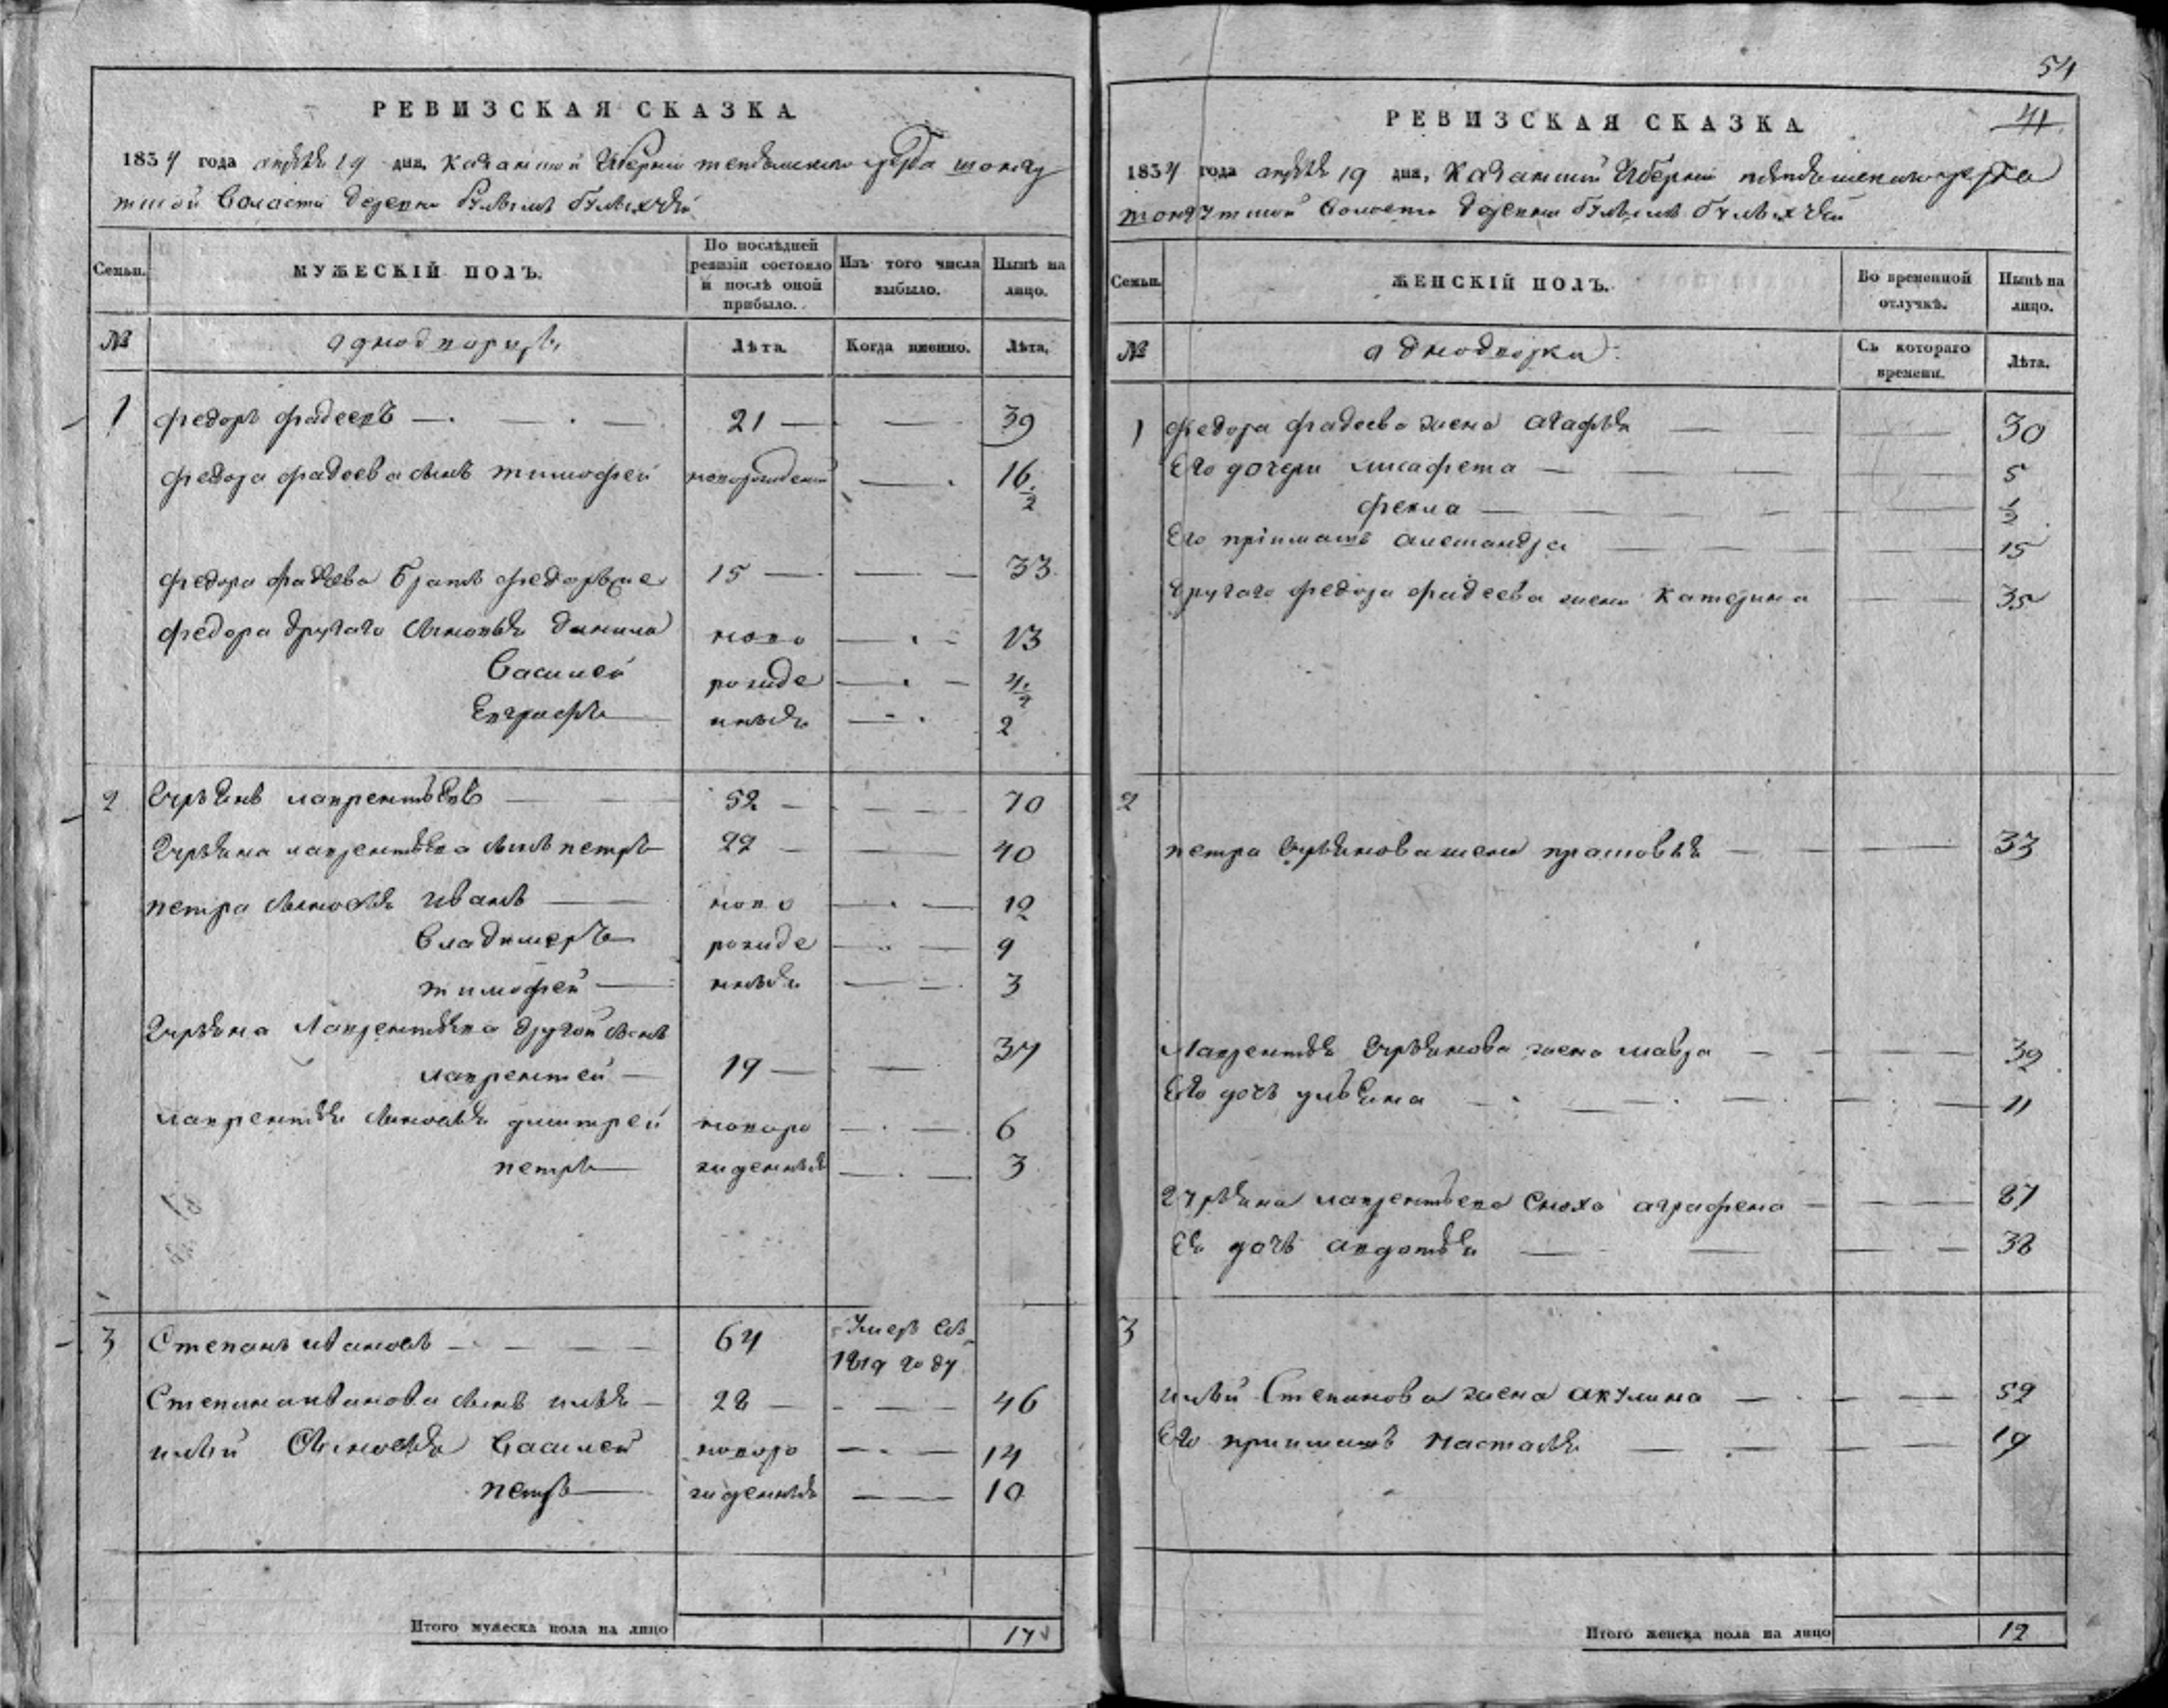 РЕВИЗСКАЯ СКАЗКА
1834 года апрѣля 19 дня, Казанской Губернии уезда
волости деревни
Семьи.
МУЖЕСКІЙ ПОЛЪ.
По послѣдней ревизіи состояло и послѣ оной прибыло.
Изъ того числа выбыло.
Нынѣ на лицо.
№
однодворцы
Лѣта.
Когда именно.
Лѣта.
1 Федоръ Фадеевъ 21 39
Федора Фадеева сынъ Тимофей новорожденный 16 1/2
Федора Фадеева братъ Федоръ же 15 33
Федора другаго сыновья Данила ново 13
Василей рожде 4 1/2
Евграфъ нныя 2
2 Лаврентьевъ 52 70
Лаврентьева сынъ Петръ 22 40
Петра сыновья Иванъ ново 12
Владимеръ рожде 9
Тимофей нныя 3
Лаврентьева другой сынъ
Лаврентей 19 37
Лаврентья сыновья Дмитрей новоро 6
Петръ жденныя 3
3 Степанъ Ивановъ 64 Умеръ въ
1819 году
Степана Иванова сынъ Илья 28 46
Ильи Сыновья Василей новоро 14
Петръ жденныя 10
Итого мужеска пола на лицо 17
54
41
РЕВИЗСКАЯ СКАЗКА
1834 года апрѣля 19 дня, Казанской Губернии уезда
волости деревни
Семьи.
ЖЕНСКІЙ ПОЛЪ.
Во временной отлучкѣ.
Нынѣ на лицо.
№
однодворки
Съ котораго времени.
Лѣта.
1 Федора Фадеева жена Агафья 30
Его дочери Лисафета 5
Фекла 1/2
Его пріиматъ 15
другаго Федора Фадеева жена Катерина 35
2
Петра жена Прасковья 33
Лаврентья жена Мавра 39
Его дочь Ульяна 11
Лаврентьева сноха Аграфена
Ея дочь Авдотья 38
3
Ильи Степанова жена Акулина 52
Его пріиматъ Настасья 19
Итого женска пола на лицо 12